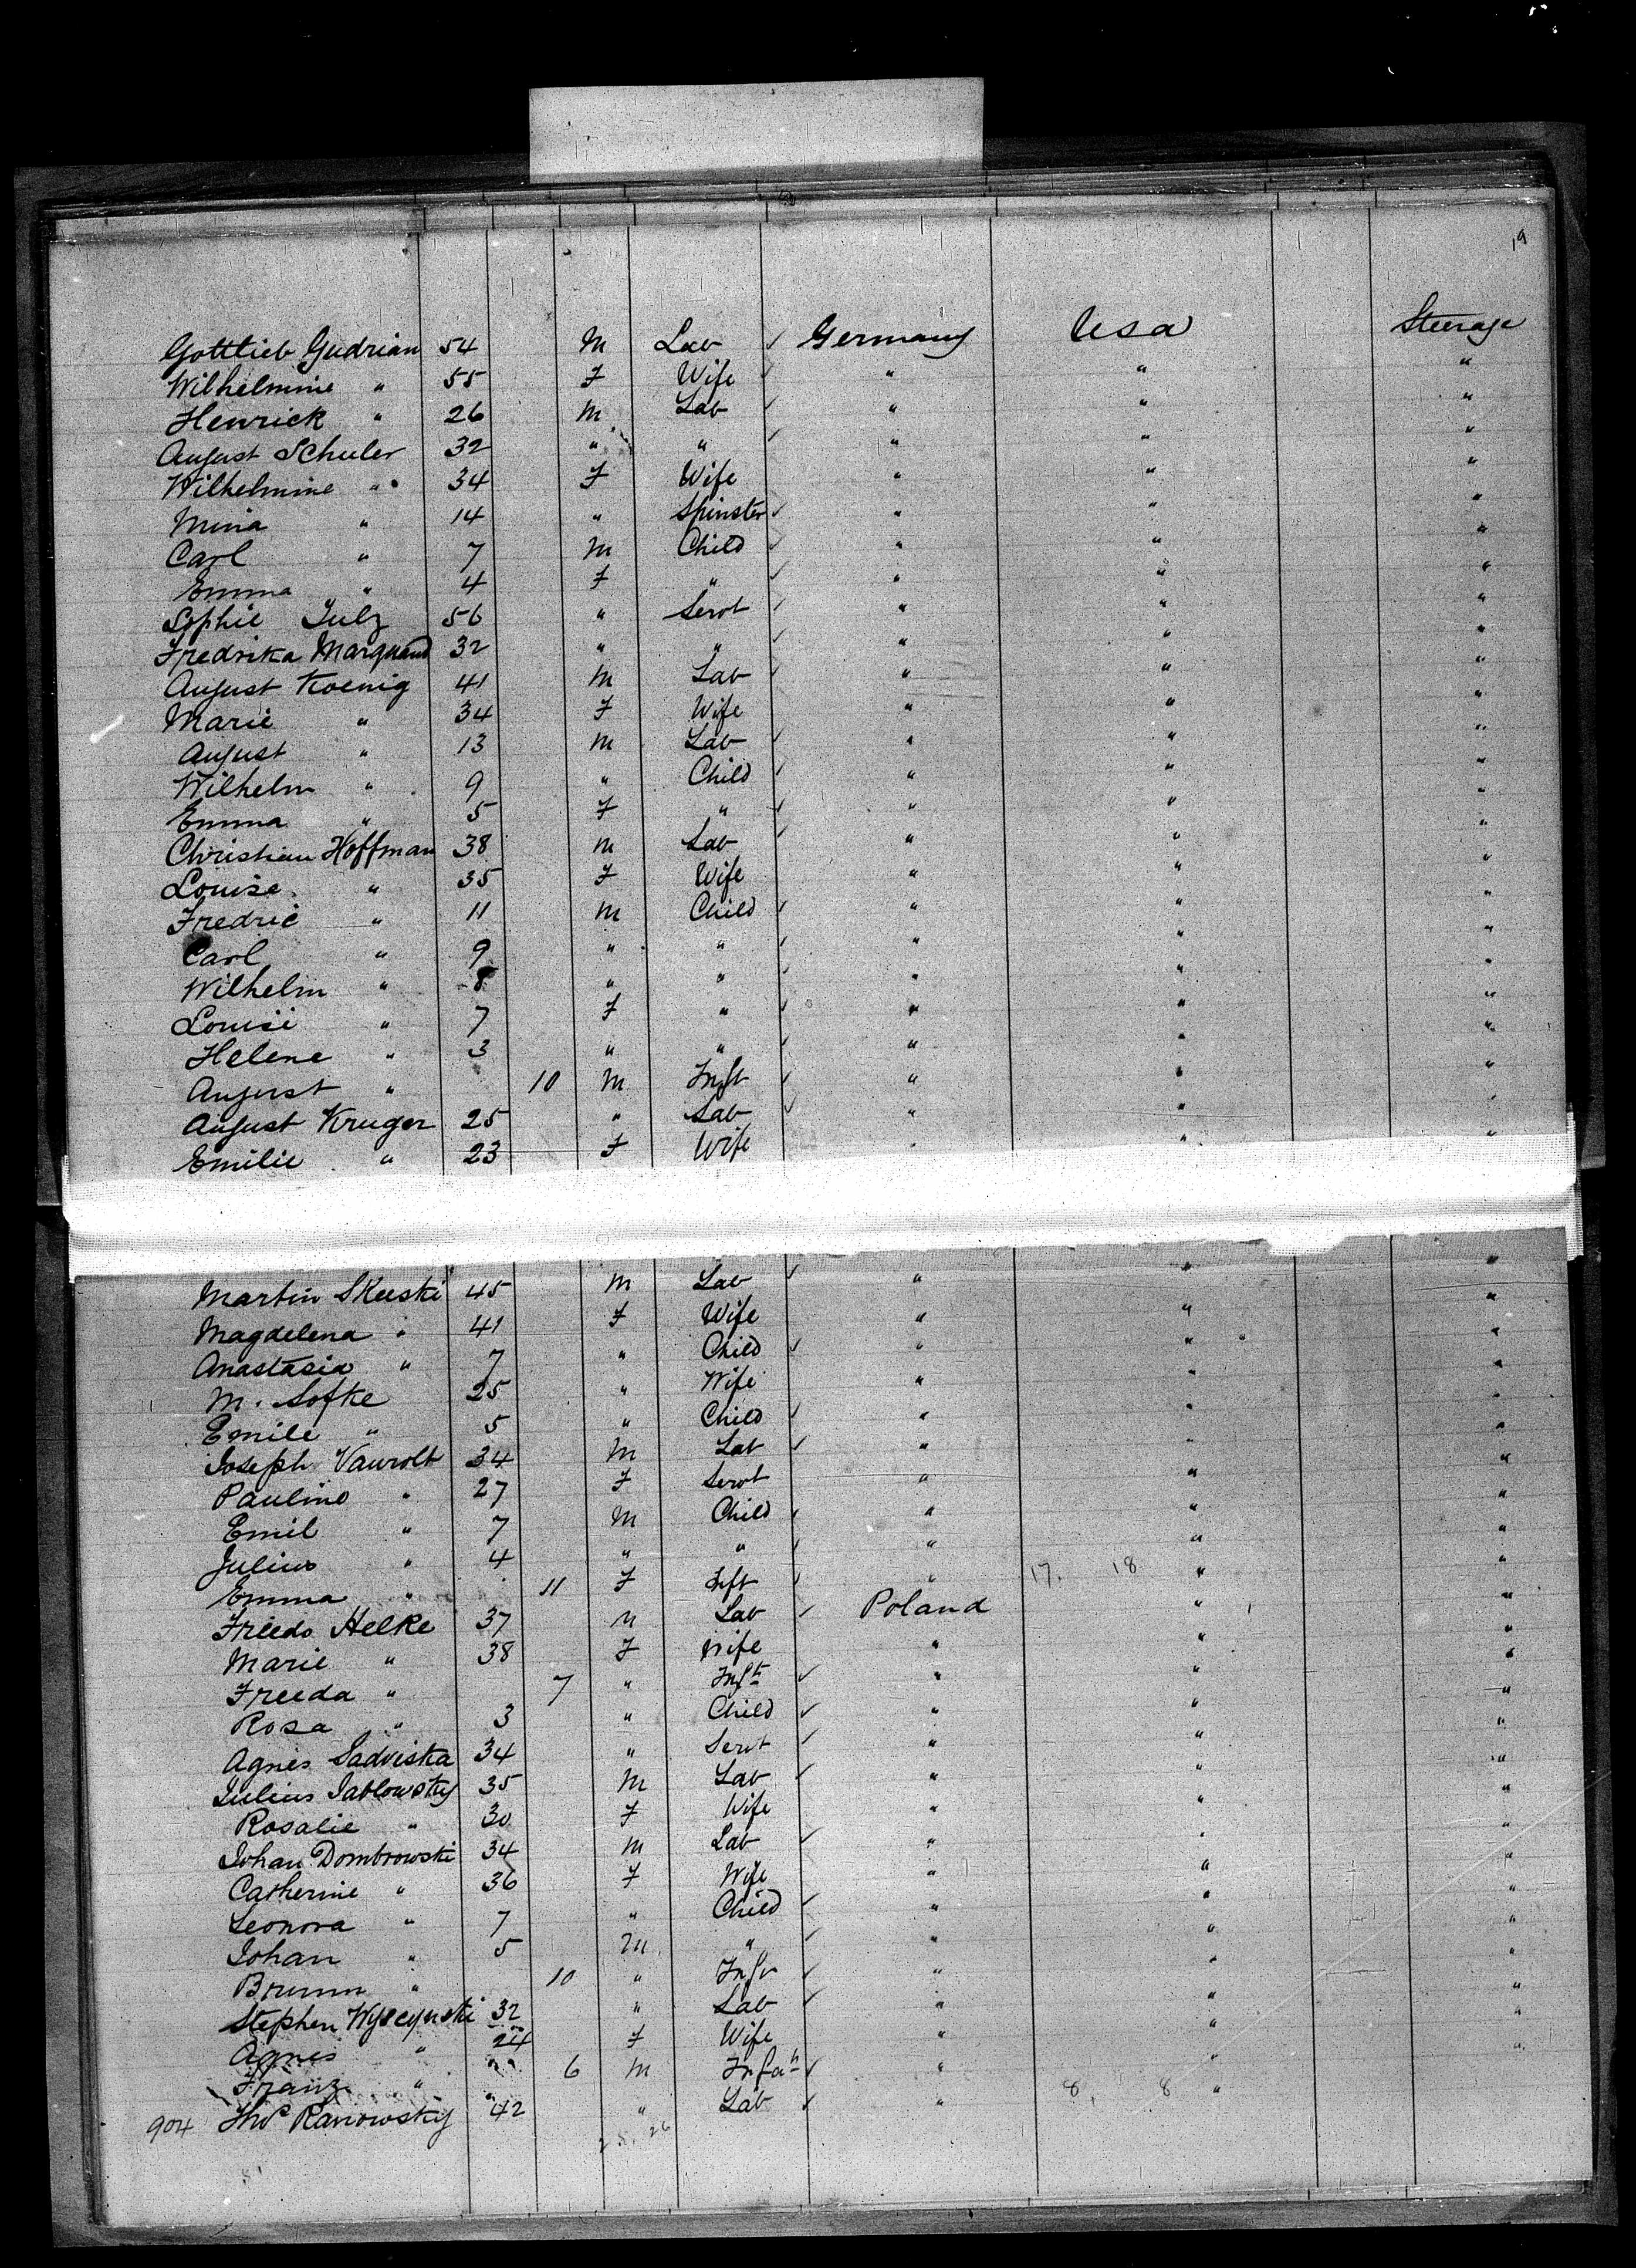 19
Gottlieb Gudrian 54 M Lab ✓ Germany Usa Steerage
Wilhelmine " 55 F Wife ✓ " " "
Henrick " 26 M Lab ✓ " " "
August Schuler 32 " " ✓ " " "
Wilhelmine " 34 F Wife " " "
Mina " 14 " Spinster ✓ " " "
Carl " 7 M Child ✓ " " "
Emma " 4 F " ✓ " " "
Sophie 56 " Servt ✓ " " "
Fredrika Marquand 32 " " ✓ " " "
August Koenig 41 M Lab ✓ " " "
Marie " 34 F Wife " " "
August " 13 M Lab ✓ " " "
Wilhelm " 9 " Child ✓ " " "
Emma " 5 F " ✓ " " "
Christian Hoffman 38 M Lab ✓ " " "
Louise " 35 F Wife " " "
Fredric " 11 M Child ✓ " " "
Carl " 9 " " ✓ " " "
Wilhelm " 8 " " ✓ " " "
Louise " 7 F " ✓ " " "
Helene " 3 " " ✓ " " "
August " 10 M Inft ✓ " " "
August Kruger 25 " Lab ✓ " " "
Emilie " 23 F Wife " " "
Martin Skeeski 45 M Lab ✓ " " "
Magdelena " 41 F Wife " " "
Anastasia " 7 " Child ✓ " " "
M. Sofke 25 " Wife " " "
Emile " 5 " Child ✓ " " "
Joseph Vawrolt 34 M Lab ✓ " " "
Pauline " 27 F Servt " " "
Emil " 7 M Child ✓ " " "
Julius " 4 " " ✓ " " "
Emma " 11 F Inft ✓ " 17. 18 " "
Freedo Helke 37 M Lab ✓ Poland " "
Marie " 38 F Wife " " "
Freeda " 7 " Inft ✓ " " "
Rosa " 3 " Child ✓ " " "
Agnes Sadviska 34 " Servt ✓ " " "
Julius Jablowsky 35 M Lab ✓ " " "
Rosalie " 30 F Wife " " "
Johan Dombrowski 34 M Lab ✓ " " "
Catherine " 36 F Wife " " "
Leonora " 7 " Child ✓ " " "
Johan " 5 M " ✓ " " "
Brunn " 10 " Inft ✓ " " "
Stephen Wyscynski 32 " Lab ✓ " " "
Agnes " 24 F Wife " " "
Franz " 6 M Infa ✓ " " "
904 Ranowsky 42 " Lab ✓ " 8, 8 "
26